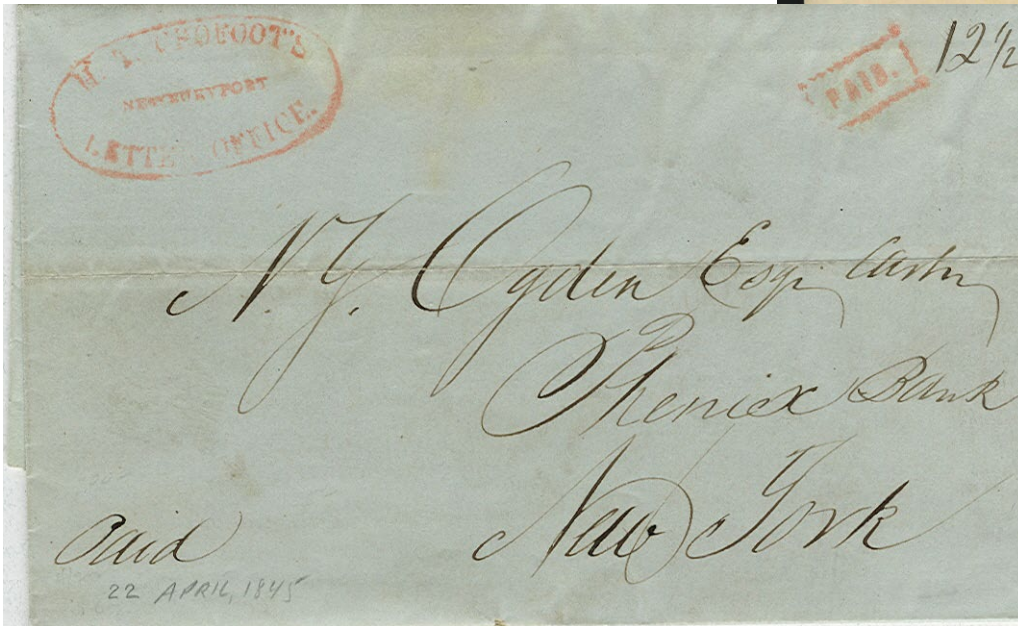 H. T. CROFOOT'S
NEWBURYPORT
LETTER OFFICE.
PAID.
12 1/2
N. J. Ogden Esqr. Cashr
Phenix Bank
New York
Paid
22 APRIL, 1845